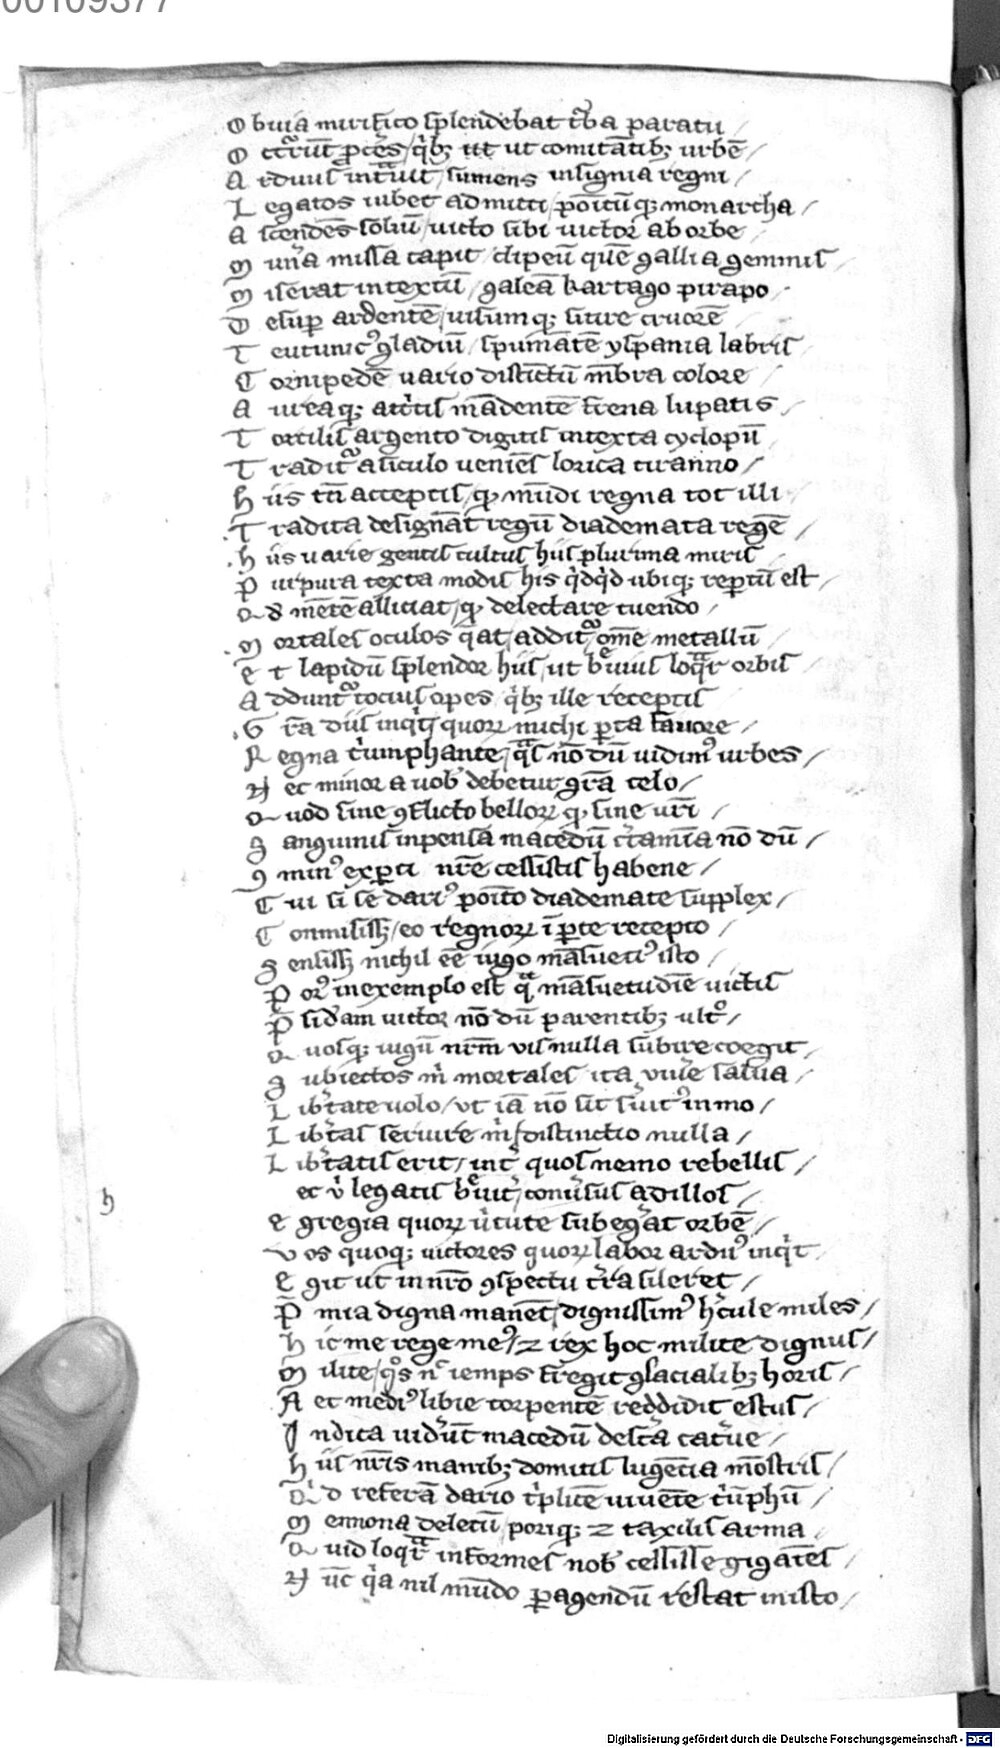 00109377
O buia mirifico splendebat t̄ba paratu /
O ccrr̄ut p̄ces / qͥb; ut comitātib; urbē /
A rduus int̄uit / sumens insignia regni /
L egatos iubet admitti / poitūq; monarcha /
A scendēs soliū / uicto sibi uictor ab orbe /
M un̄a missa capit / clipeū quē gallia gemmis /
M iserat intextū / galeā kartago pirapo /
D esup ardentē / uisumq; sitire cruorē
T eutunicꝰ gladiū / spumātē yspania labris /
C ornipedē uario distictū mbra colore /
A ureaq; atͥtis madentē frena lupatis /
T ortilis argento digitis intexta cyclopū
T radit a siculo ueniēs lorica tiranno /
H iis tn̄ acceptis / qͥ mūdi regna tot illi /
T radita designāt regū diademata regē /
H iis uarie gentis cultus hiis plurima miris /
P urpura texta modis his qͥdqͥd ubiq; reptū est /
Q d mētē alliciat / qͥ delectare tuendo /
M ortales oculos q̄at / addit om̄e metallū /
E t lapidū splendor hiis / ut b̄uius loq̄r orbis /
A ddunt tocius opes qͥb; ille receptis
G r̄a diis inqͥt quoꝝ michi pta fauore /
R egna tͥumphante / q̄s nō dū uidimꝰ urbes /
N ec minor a uob debetur gr̄a celo /
Q uod sine ꝯflicto belloꝝ qͥ sine ur̄i
S anguinis inpensa macedū c̄tamīa nō dū /
C minꝰ expti nr̄e cessistis habene /
C ui si se dariꝰ poito diademate supplex /
C onmisiss; / eo regnoꝝ ī pte recepto /
S ensiss; nichil eē iugo māsuetiꝰ isto /
P orꝰ in exemplo est qͣ māsuetudīe uictis
P sidam uictor nō dū parentib; ult /
Q uosq; iugū nr̄m uis nulla subire coegit /
S ubiectos m̄ mortales ita uiu̅e salua /
L ib̄tate uolo / ut iā nō sit s̄uitꝰ in mo /
L ib̄tas seruire m̄ / distinctio nulla /
L ib̄tatis erit / int̄ quos nemo rebellis /
h ec ū legatis b̄uit / conu̅sus ad illos /
E gregia quoꝝ uͥtute subeḡat orbē /
V os quoq; uictores quoꝝ labor arduꝰ inqͥt
E git ut in nr̄o ꝯspectu tr̄a sileret /
P mia digna manēt / dignissimꝰ hc̄ule miles /
H ic me rege meꝰ / ⁊ rex hoc milite dignus /
M ilite / qͦs nͨ iemps fregit glacialib; horis /
N ec mediꝰ libie torpentē reddidit estus /
I ndica uid̄ut macedū des̄ta cat̄ue /
H iis nr̄is manib; domitis lugētia mōstris /
Q d referā dario tͥplicē uiuēte tͥūphū /
M ennona deletū / poriq; ⁊ taxilis arma /
Q uid loq̄r informes nob cessisse gigātes /
N ūc qͥa nil mūdo pagendū restat in isto /
Digitalisierung gefördert durch die Deutsche Forschungsgemeinschaft - DFG